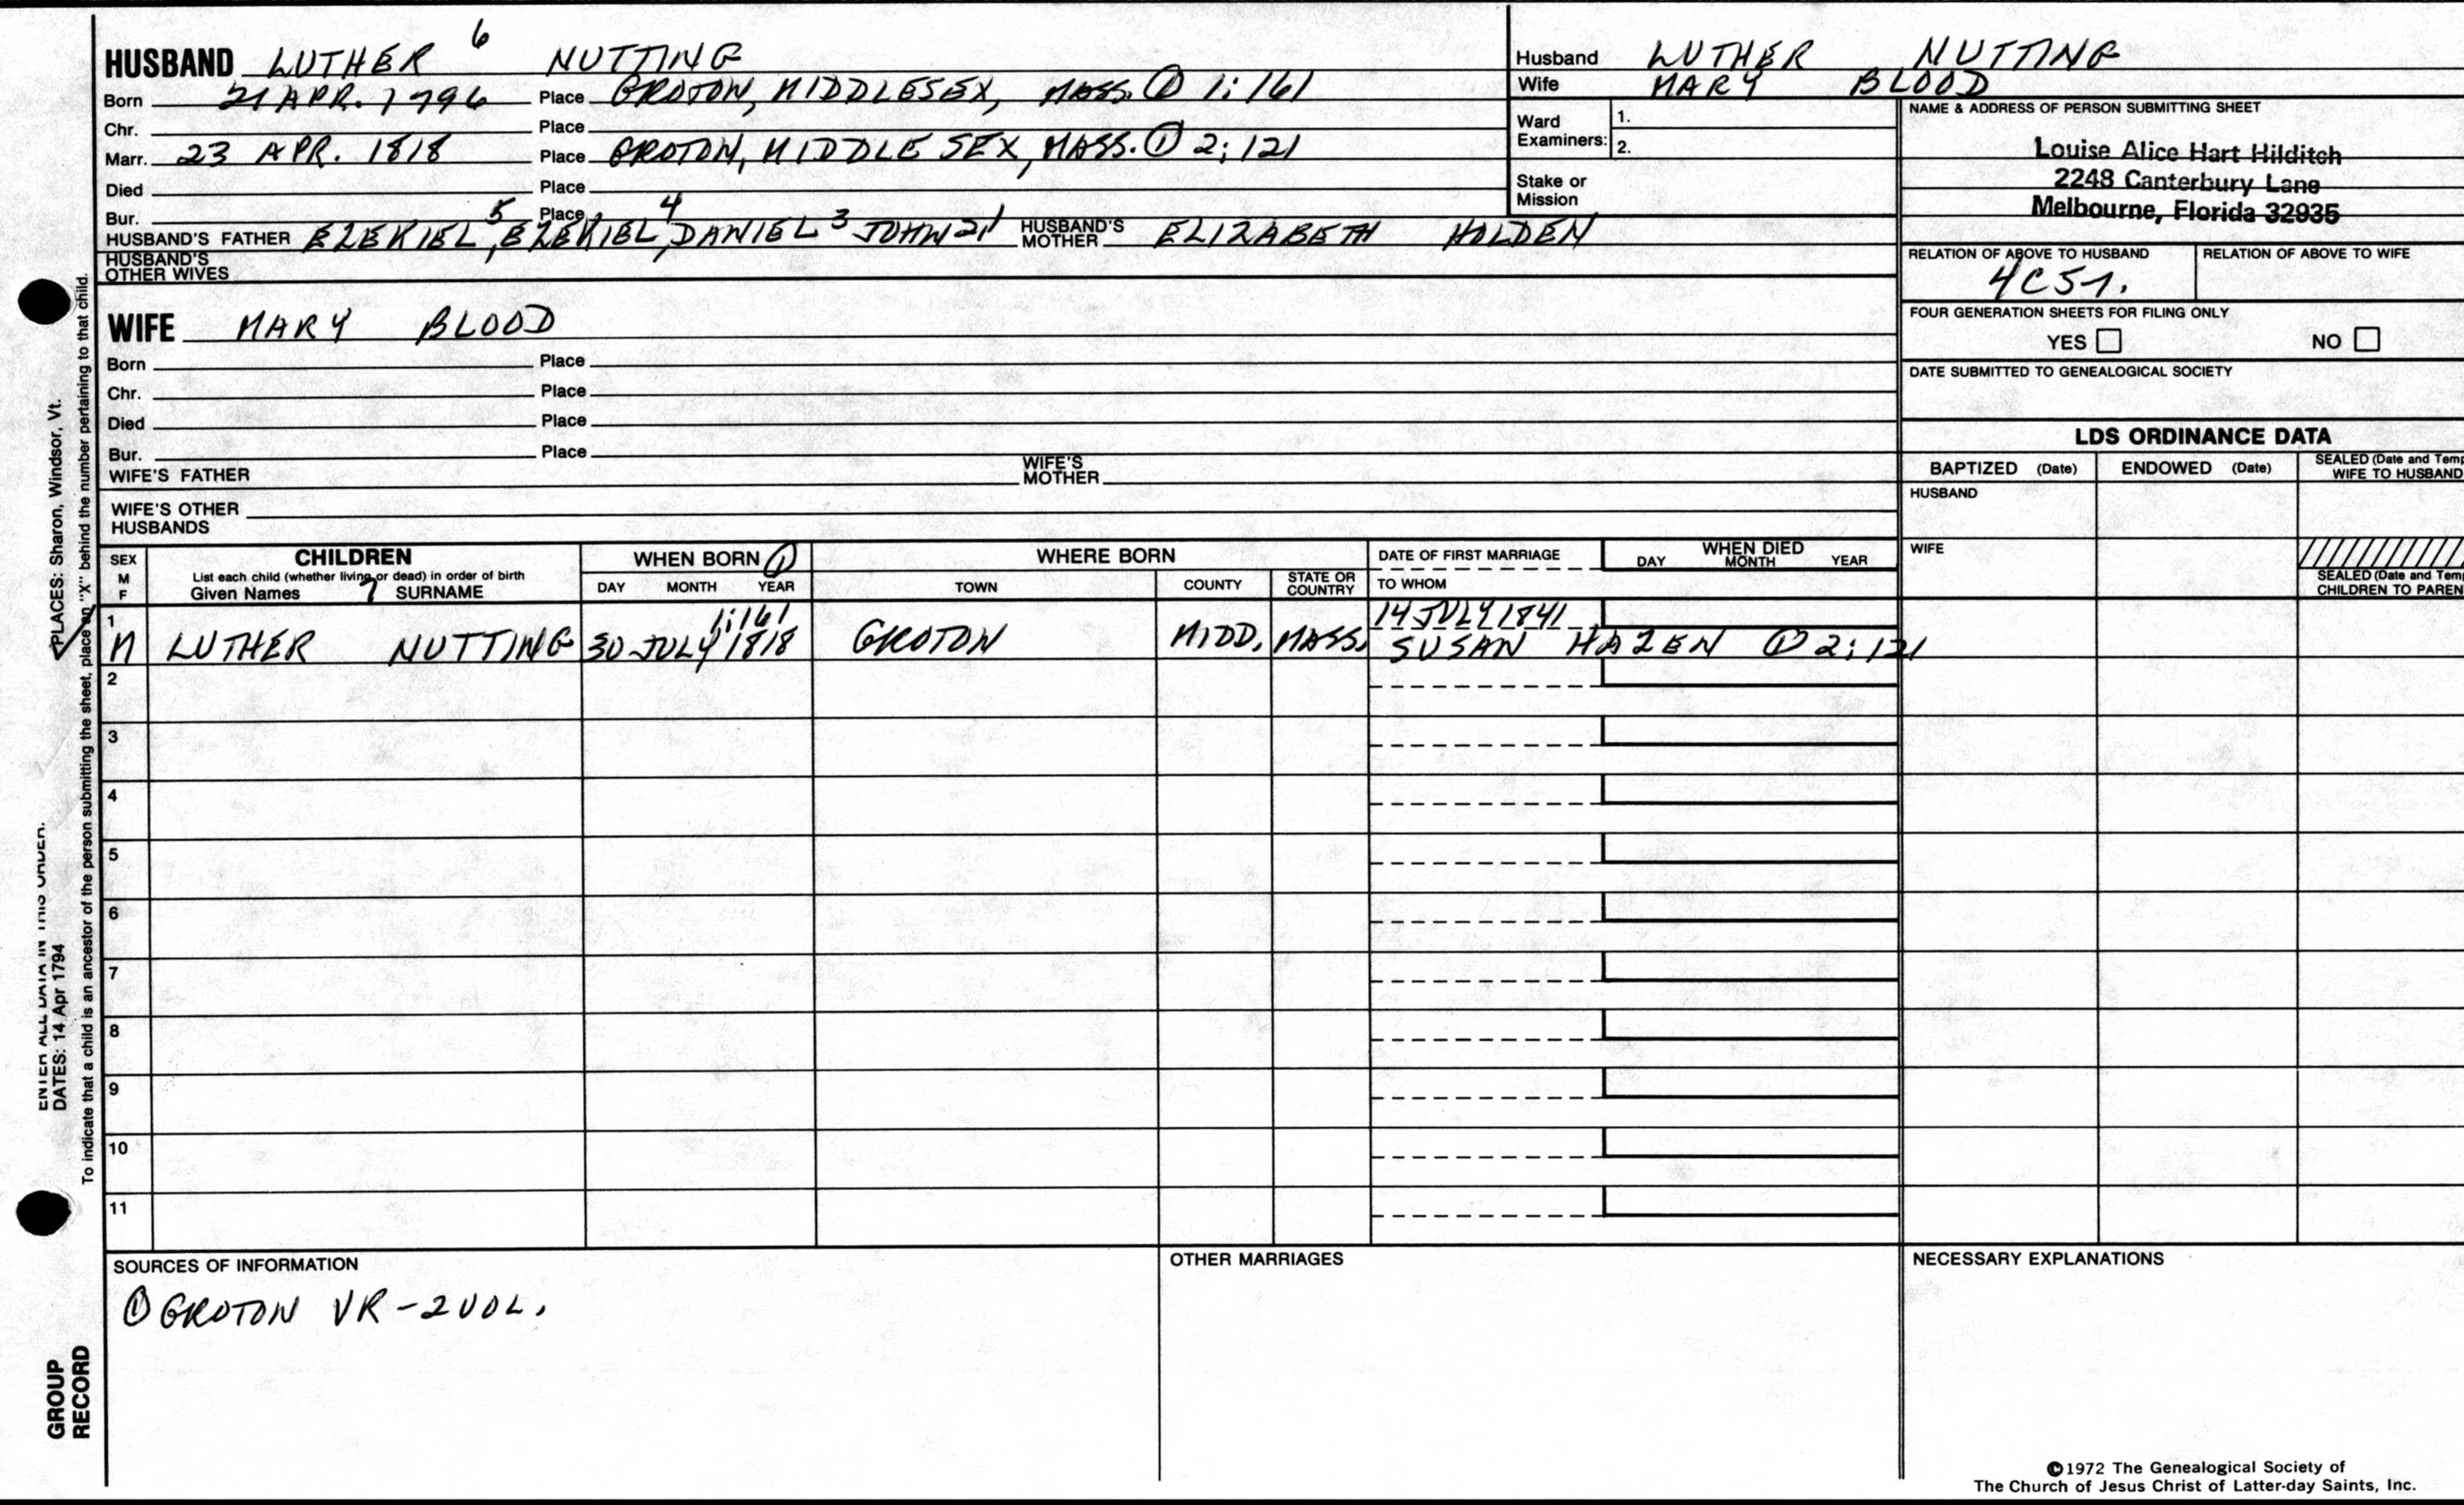 HUSBAND LUTHER 6 NUTTING
Born 21 APR. 1796 Place GROTON, MIDDLESEX, MASS. ① 1:161
Chr. Place
Marr. 23 APR. 1818 Place GROTON, MIDDLESEX, MASS. ① 2:121
Died Place
Bur. Place
HUSBAND'S FATHER EZEKIEL 5, EZEKIEL 4, DANIEL 3 JOHN 2,1 HUSBAND'S MOTHER ELIZABETH HOLDEN
HUSBAND'S OTHER WIVES
WIFE MARY BLOOD
Born Place
Chr. Place
Died Place
Bur. Place
WIFE'S FATHER WIFE'S MOTHER
WIFE'S OTHER HUSBANDS
Husband LUTHER NUTTING
Wife MARY BLOOD
Ward Examiners: 1.
2.
Stake or Mission
NAME & ADDRESS OF PERSON SUBMITTING SHEET
Louise Alice Hart Hilditch
2248 Canterbury Lane
Melbourne, Florida 32935
RELATION OF ABOVE TO HUSBAND RELATION OF ABOVE TO WIFE
FOUR GENERATION SHEETS FOR FILING ONLY
YES NO
DATE SUBMITTED TO GENEALOGICAL SOCIETY
LDS ORDINANCE DATA
BAPTIZED (Date) ENDOWED (Date) SEALED (Date and Temp WIFE TO HUSBAND
HUSBAND
WIFE
SEALED (Date and Temp CHILDREN TO PAREN
SEX M F
CHILDREN
List each child (whether living or dead) in order of birth
Given Names 7 SURNAME
WHEN BORN ①
DAY MONTH YEAR
WHERE BORN
TOWN COUNTY STATE OR COUNTRY
DATE OF FIRST MARRIAGE
TO WHOM
WHEN DIED
DAY MONTH YEAR
1 1:161 14 JULY 1841
M LUTHER NUTTING 30 JULY 1818 GROTON MIDD. MASS. SUSAN HAZEN ① 2:121
2
3
4
5
6
7
8
9
10
11
SOURCES OF INFORMATION
① GROTON VR - 2 VOL.
OTHER MARRIAGES
NECESSARY EXPLANATIONS
©1972 The Genealogical Society of
The Church of Jesus Christ of Latter-day Saints, Inc.
ENTER ALL DATA IN THIS ORDER.
DATES: 14 Apr 1794
PLACES: Sharon, Windsor, Vt.
To indicate that a child is an ancestor of the person submitting the sheet, place an "X" behind the number pertaining to that child.
GROUP
RECORD